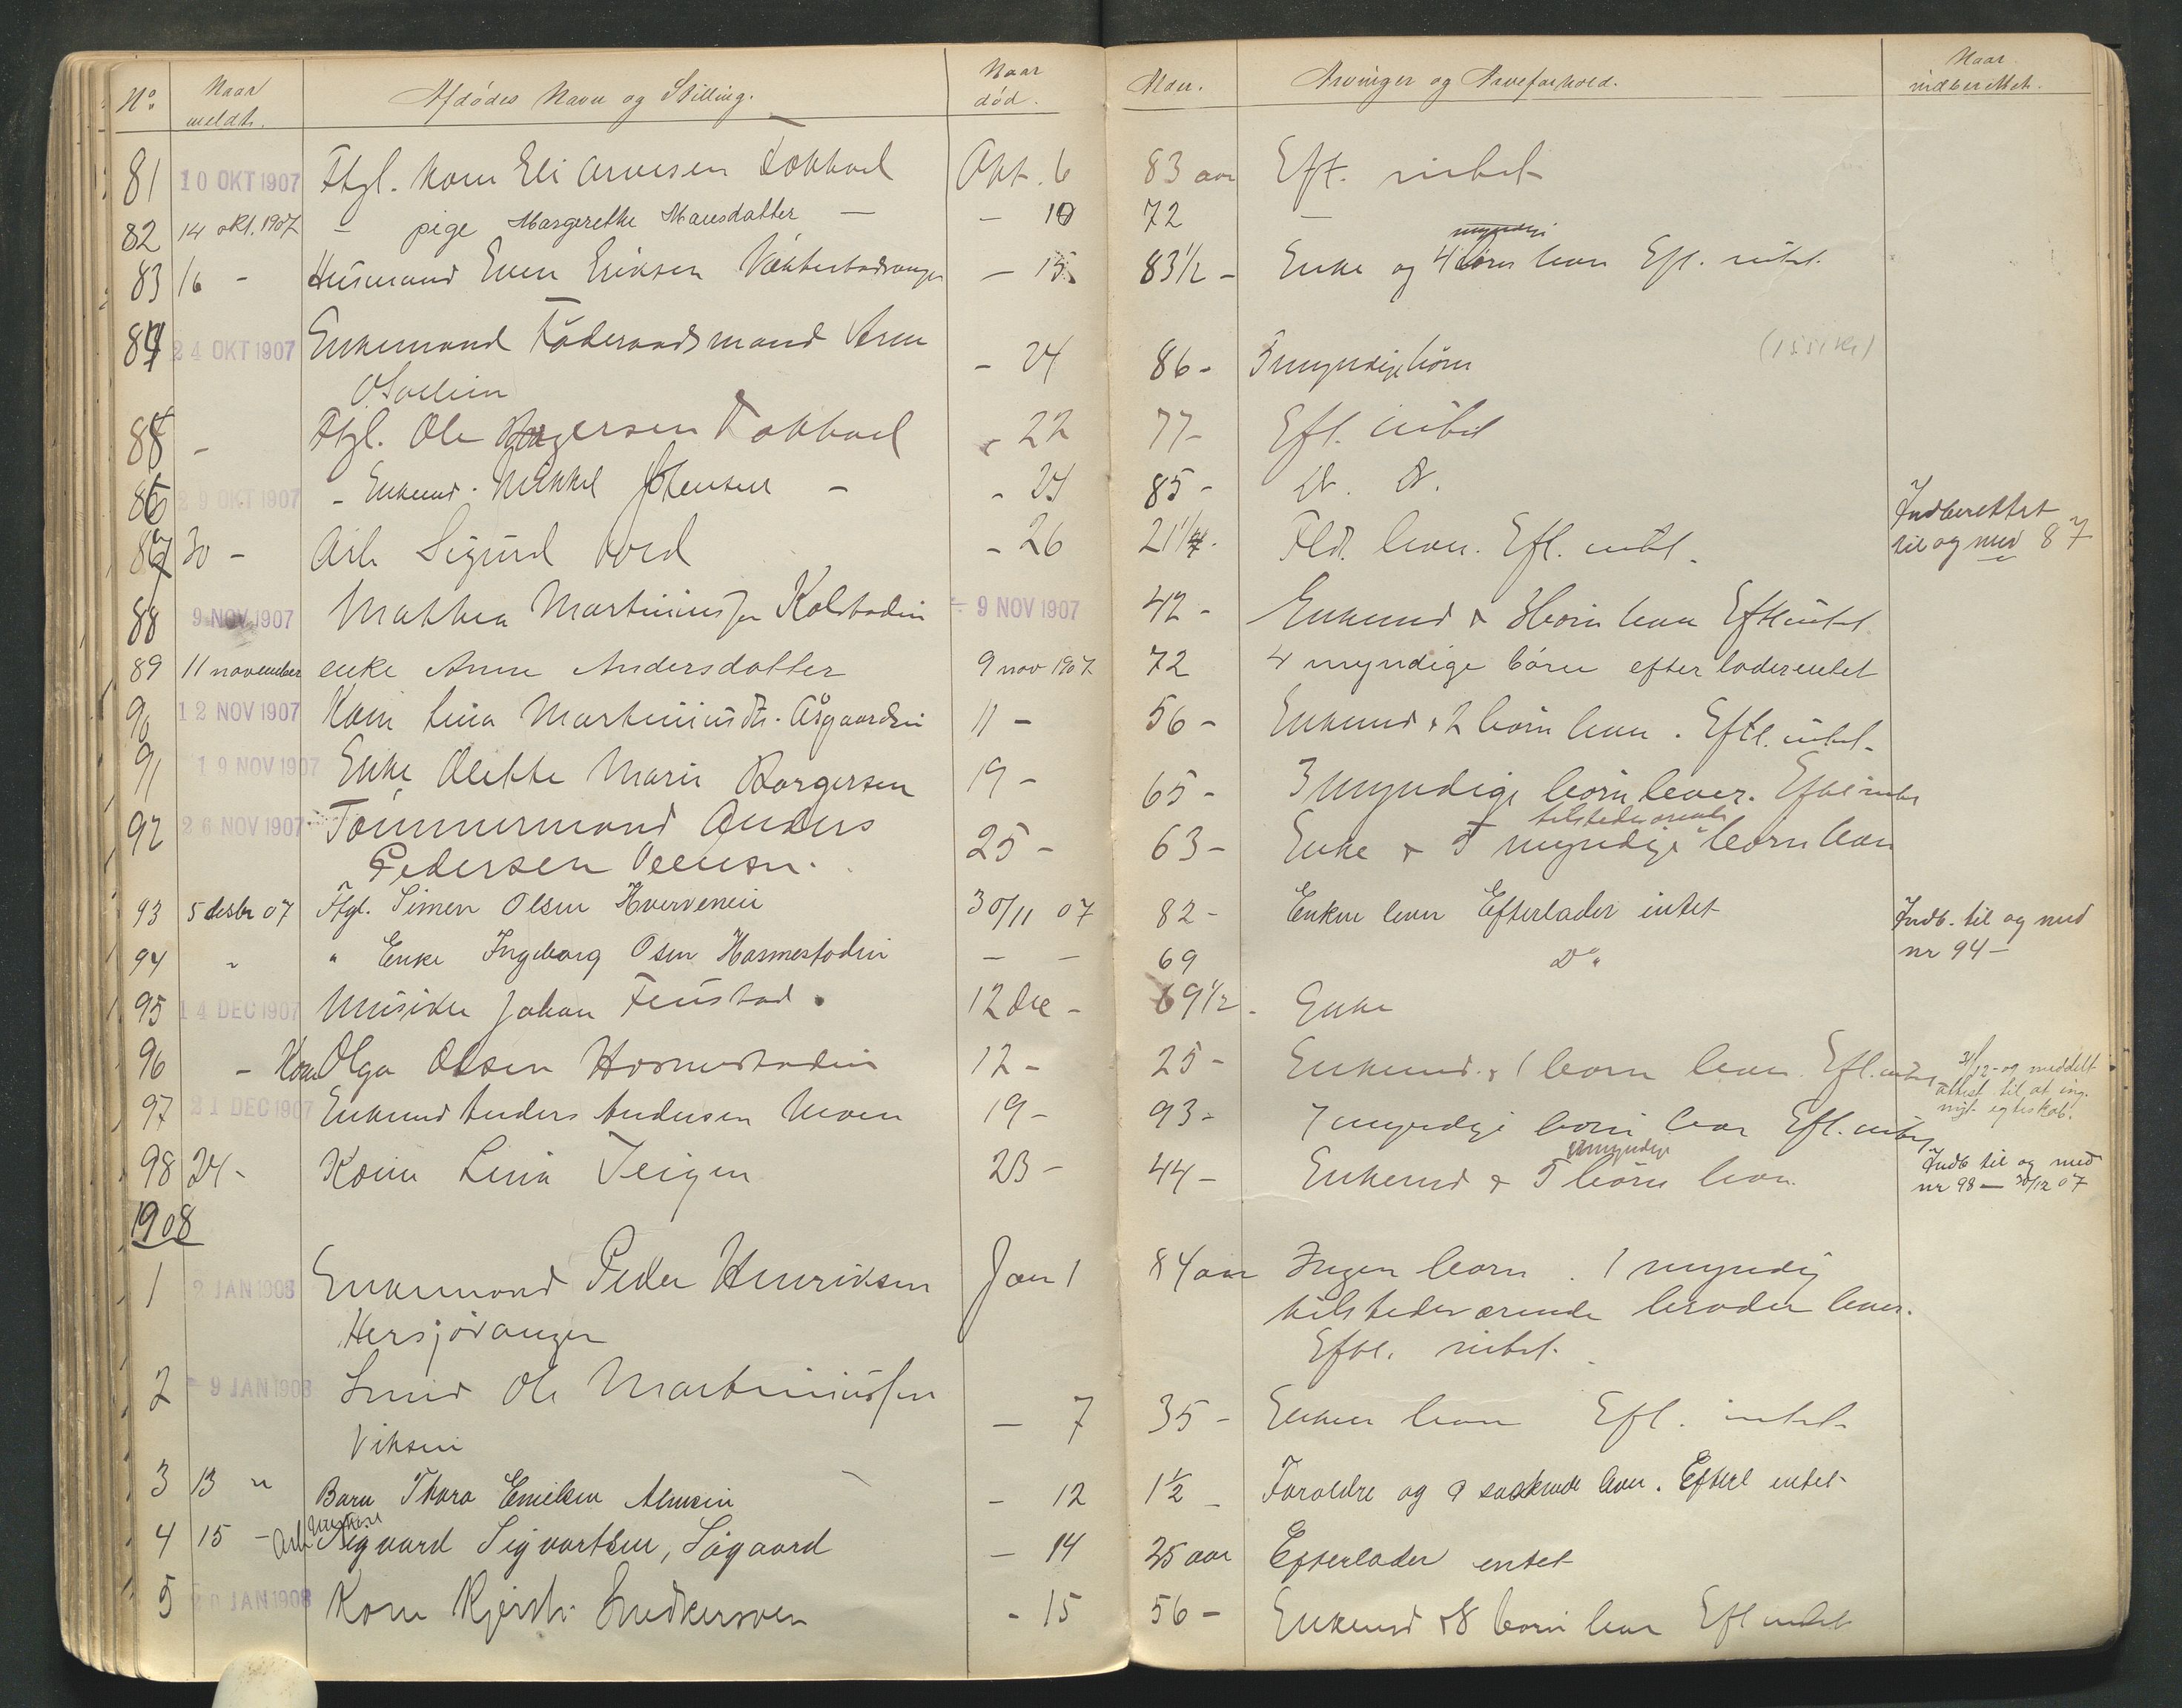 No. Naar meldt. Afdødes Navn og Stilling. Naar død. Alder. Arvinger og Arveforhold. Naar indberettet.
81 10 OKT 1907 Ftgl. kone Eli Arnesen Løkkael Okt. 6 83 aar Eft. intet
82 14 okt. 1907 – pige Margrethe Hansdatter — – 10 72 –
83 16 – Husmand Even Eriksen – 15 83 1/2 – Enke og 4 myndige børn lever Efl. intet
84 24 OKT 1907 Enkemand Føderaadsmand Arne – 24 86 – 5 myndige børn
85 – Ftgl. Ole – 22 77 – Efl. intet
86 29 OKT 1907 – Enkemd. Mikkel Johansen – – 24 85 – D. D.
Indberettet
87 30 – Arb. Sigurd – 26 21 Fld. lever. Efl. intet.
til og med 87
88 9 NOV 1907 Mathea Martiniussen Kolstadin – 9 NOV 1907 42 – Enkemd & 3 børn lever Eftl intet
89 11 november enke Anne Andersdatter 9 nov 1907 72 4 myndige børn efterlader entet
90 12 NOV 1907 Kone Lina Martiniusdtr. Aasgaardin 11 – 56 – Enkemd & 2 børn lever. Eftl. intet.
91 19 NOV 1907 Enke Olette Marie Borgersen 19 – 65 – 3 myndige børn lever. Eftl intet
tilstedeværende
92 26 NOV 1907 Tømmermand Anders 25 – 63 – Enke & 5 myndige børn lever
Pedersen
93 5 desbr 07 Ftgl. Simen Olsen Kvervenin 30/11 07 82 – Enken lever Efterlader intet Indb. til og med
94 " " Enke Ingeborg Osen Hasmostadin – – 69 D° nr 94 –
95 14 DEC 1907 Musiker Johan Finstad. 12 Dec – 69 1/2 – Enke
96 – Kone Olga Olsen Hosmestadin 12 – 25 – Enkemd. & 1 barn lever. Efl. intet 31/12 – og meddelt
attest til at ing.
nyt egteskab.
97 21 DEC 1907 Enkemd Anders Andersen Moen 19 – 93 – 7 myndige børn lever Efl. intet
umyndige
98 24 – Kone Lina Teigen 23 – 44 – Enkemd & 5 børn lever. Indb til og med
nr 98 — 30/12 07
1908
1 2 JAN 1908 Enkemand Peder Henriksen Jan 1 84 aar Ingen børn. 1 myndig
Hersjøvangen tilstedeværende broder lever.
Eftl. intet.
2 – 9 JAN 1908 Smed Ole Martiniussen – 7 35 – Enken lever Efl. intet
Viksen
3 13 " Barn Thora Emilsen – 12 1 1/2 – Foreldre og 9 søskende lever. Efterl entet
4 15 – Arb Sigvard Sigvartsen, Sågaard – 14 25 aar Efterlader entet
5 20 JAN 1908 Kone Kjersti – 15 56 – Enkemd & 8 børn lever Efl intet